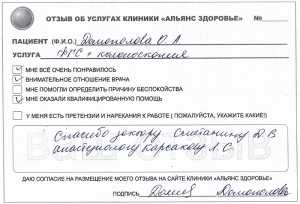 ОТЗЫВ ОБ УСЛУГАХ КЛИНИКИ «АЛЬЯНС ЗДОРОВЬЕ» №
ПАЦИЕНТ (Ф.И.О.) Домополова О. А
УСЛУГА ФГС + колоноскопия
МНЕ ВСЁ ОЧЕНЬ ПОНРАВИЛОСЬ
ВНИМАТЕЛЬНОЕ ОТНОШЕНИЕ ВРАЧА
МНЕ ПОМОГЛИ ОПРЕДЕЛИТЬ ПРИЧИНУ БЕСПОКОЙСТВА
МНЕ ОКАЗАЛИ КВАЛИФИЦИРОВАННУЮ ПОМОЩЬ
У МЕНЯ ЕСТЬ ПРЕТЕНЗИИ И НАРЕКАНИЯ К РАБОТЕ ( ПОЖАЛУЙСТА, УКАЖИТЕ КАКИЕ!)
Спасибо доктору Сметанину Д В
анастезиологу Карсакову Л. С.
ДАЮ СОГЛАСИЕ НА РАЗМЕЩЕНИЕ МОЕГО ОТЗЫВА НА САЙТЕ КЛИНИКИ «АЛЬЯНС ЗДОРОВЬЕ»
ПОДПИСЬ